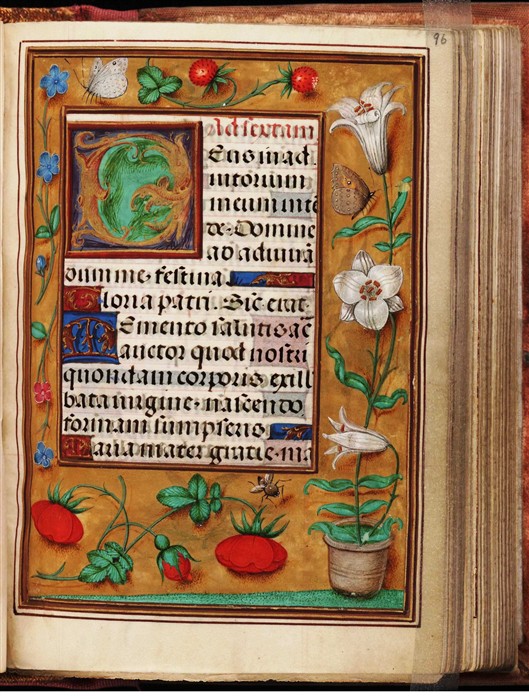 96
Ad sextam
DEus in ad
iutorium
meum inte
de. Domine
ad adiuuā
dum me. festina.
Gloria patri. Sic̄ erat.
MEmento salutis ac
auctor quod nostri
quondam corporis ex ill
bata uirgine. nascendo
formam sumpseris
Maria mater gratie. ma